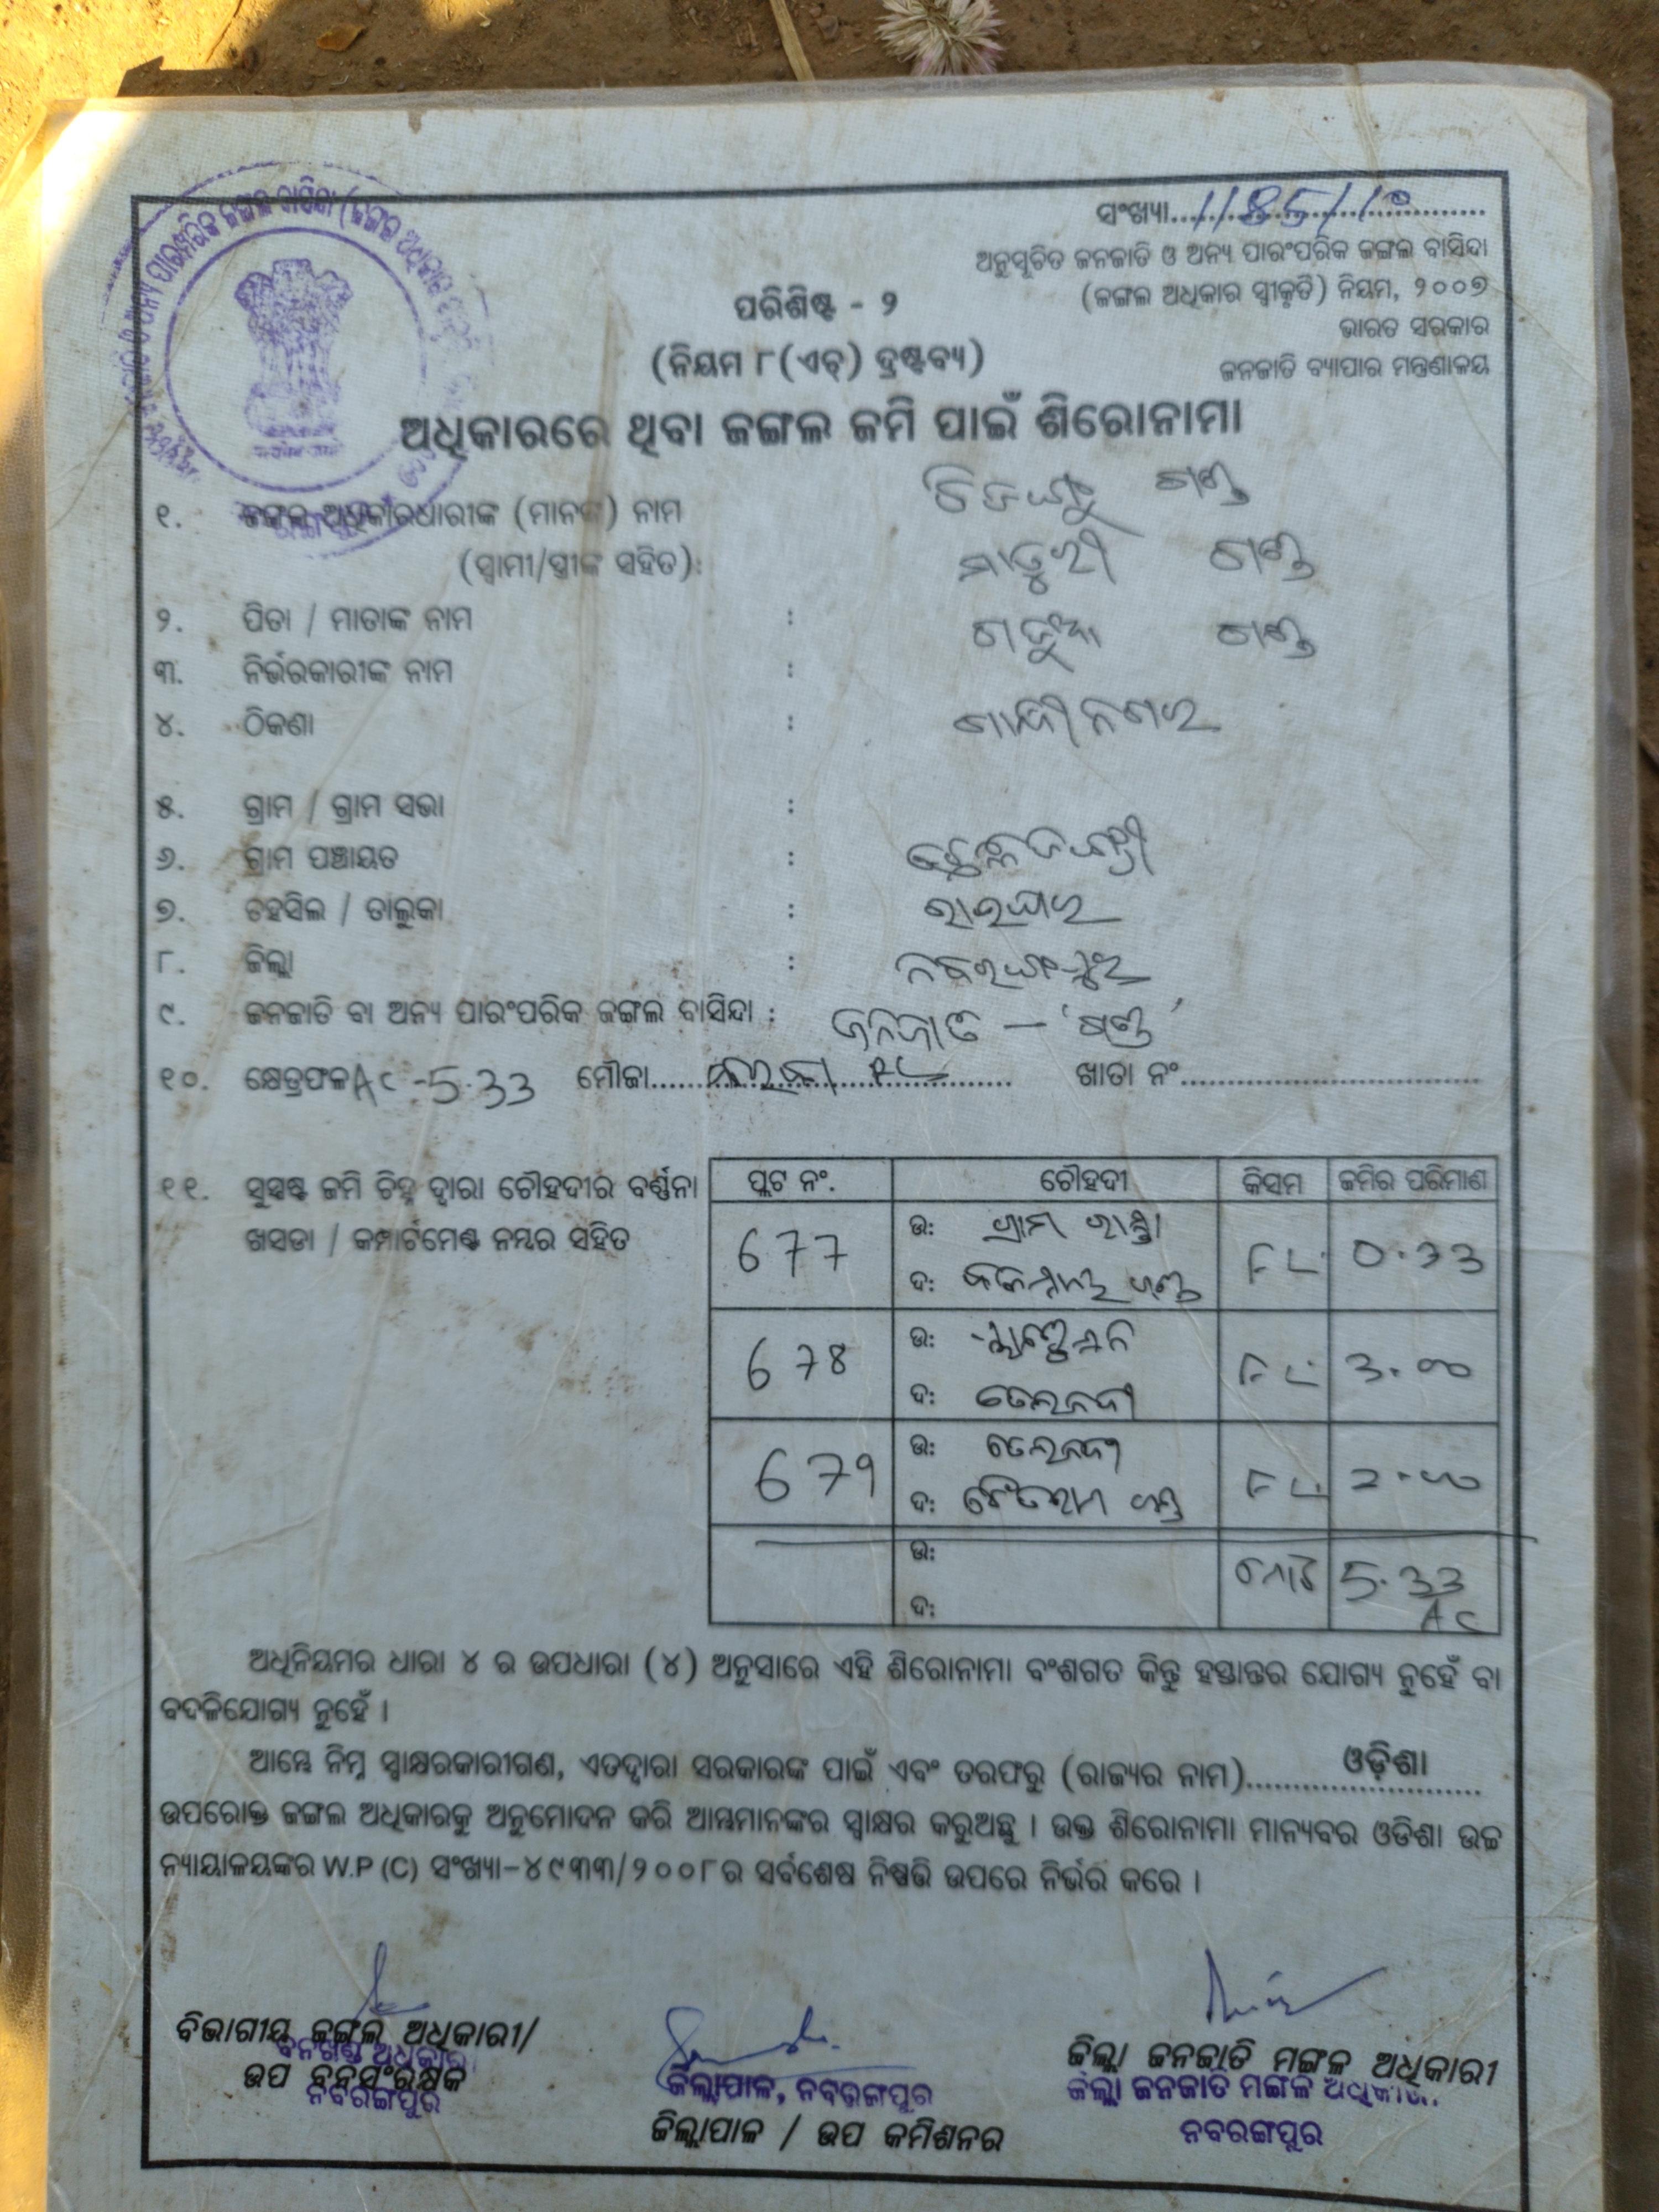 ସଂଖ୍ୟା 1185/10
ଅନୁସୂଚିତ ଜନଜାତି ଓ ଅନ୍ୟ ପାରଂପରିକ ଜଙ୍ଗଲ ବାସିନ୍ଦା
(ଜଙ୍ଗଲ ଅଧିକାର ସ୍ୱୀକୃତି) ନିୟମ, ୨୦୦୭
ଭାରତ ସରକାର
ଜନଜାତି ବ୍ୟାପାର ମନ୍ତ୍ରଣାଳୟ
ପରିଶିଷ୍ଟ - ୨
(ନିୟମ ୮(ଏଚ୍) ଦ୍ରଷ୍ଟବ୍ୟ)
ଅଧିକାରରେ ଥିବା ଜଙ୍ଗଲ ଜମି ପାଇଁ ଶିରୋନାମା
୧. ଜଙ୍ଗଲ ଅଧିକାରଧାରୀଙ୍କ (ମାନଙ୍କ) ନାମ
(ସ୍ୱାମୀ/ସ୍ତ୍ରୀଙ୍କ ସହିତ):
୨. ପିତା / ମାତାଙ୍କ ନାମ :
୩. ନିର୍ଭରକାରୀଙ୍କ ନାମ :
୪. ଠିକଣା : ଗାନ୍ଧୀନଗର
୫. ଗ୍ରାମ / ଗ୍ରାମ ସଭା :
୬. ଗ୍ରାମ ପଞ୍ଚାୟତ :
୭. ତହସିଲ / ତାଲୁକା : ରାଇଘର
୮. ଜିଲ୍ଲା : ନବରଙ୍ଗପୁର
୯. ଜନଜାତି ବା ଅନ୍ୟ ପାରଂପରିକ ଜଙ୍ଗଲ ବାସିନ୍ଦା : ଜନଜାତି –
୧୦. କ୍ଷେତ୍ରଫଳ AC - 5.33 ମୌଜା ଖାତା ନଂ
୧୧. ସୁସ୍ପଷ୍ଟ ଜମି ଚିହ୍ନ ଦ୍ୱାରା ଚୌହଦୀର ବର୍ଣ୍ଣନା
ଖସଡା / କମ୍ପାର୍ଟମେଣ୍ଟ ନମ୍ବର ସହିତ
ପ୍ଲଟ ନଂ. ଚୌହଦୀ କିସମ ଜମିର ପରିମାଣ
677 ଉ: ଗ୍ରାମ ରାସ୍ତା FL 0.33
ଦ:
678 ଉ: FL 3.00
ଦ: ତେଲନଦୀ
679 ଉ: ତେଲନଦୀ FL 2.00
ଦ:
ଉ: ମୋଟ 5.33 AC
ଦ:
ଅଧିନିୟମର ଧାରା ୪ ର ଉପଧାରା (୪) ଅନୁସାରେ ଏହି ଶିରୋନାମା ବଂଶଗତ କିନ୍ତୁ ହସ୍ତାନ୍ତର ଯୋଗ୍ୟ ନୁହେଁ ବା
ବଦଳିଯୋଗ୍ୟ ନୁହେଁ ।
ଆମ୍ଭେ ନିମ୍ନ ସ୍ୱାକ୍ଷରକାରୀଗଣ, ଏତଦ୍ୱାରା ସରକାରଙ୍କ ପାଇଁ ଏବଂ ତରଫରୁ (ରାଜ୍ୟର ନାମ) ଓଡ଼ିଶା
ଉପରୋକ୍ତ ଜଙ୍ଗଲ ଅଧିକାରକୁ ଅନୁମୋଦନ କରି ଆମ୍ଭମାନଙ୍କର ସ୍ୱାକ୍ଷର କରୁଅଛୁ । ଉକ୍ତ ଶିରୋନାମା ମାନ୍ୟବର ଓଡିଶା ଉଚ୍ଚ
ନ୍ୟାୟାଳୟଙ୍କର W.P (C) ସଂଖ୍ୟା-୪୯୩୩/୨୦୦୮ର ସର୍ବଶେଷ ନିଷ୍ପତ୍ତି ଉପରେ ନିର୍ଭର କରେ ।
ବିଭାଗୀୟ ଜଙ୍ଗଲ ଅଧିକାରୀ/
ବନଖଣ୍ଡ ଅଧିକାରୀ
ଉପ ବନସଂରକ୍ଷକ
ନବରଙ୍ଗପୁର
ଜିଲ୍ଲାପାଳ, ନବରଙ୍ଗପୁର
ଜିଲ୍ଲାପାଳ / ଉପ କମିଶନର
ଜିଲ୍ଲା ଜନଜାତି ମଙ୍ଗଳ ଅଧିକାରୀ
ଜିଲ୍ଲା ଜନଜାତି ମଙ୍ଗଳ ଅଧିକାରୀ
ନବରଙ୍ଗପୁର